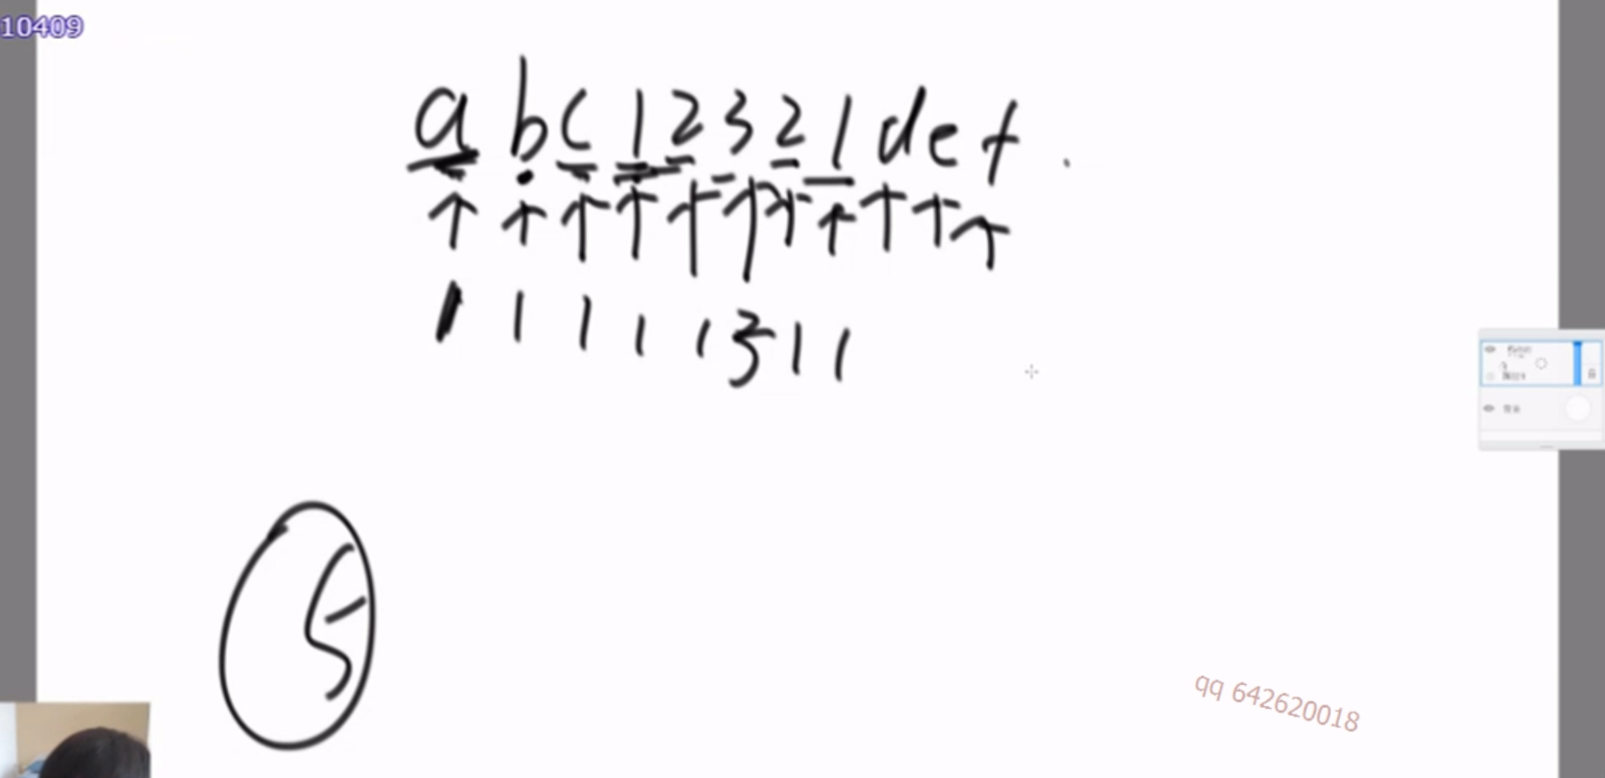 10409
abc12321def.
1 1 1 1 1 5 1 1
5
qq 642620018